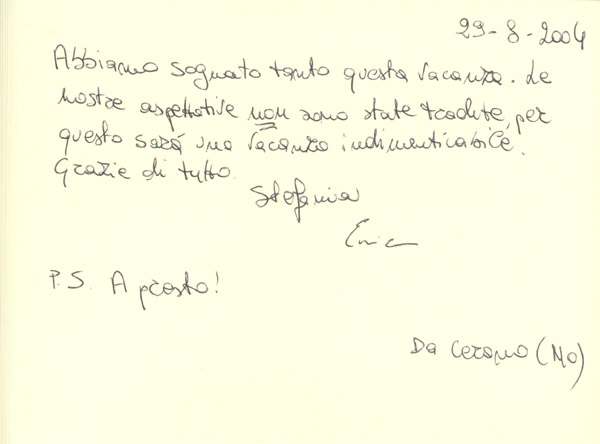 29-8-2004
Abbiamo sognato tanto questa vacanza. Le
nostre aspettative non sono state tradite, per
questo sarà una vacanza indimenticabile.
Grazie di tutto.
Stefania
P.S. A presto!
Da (MO)